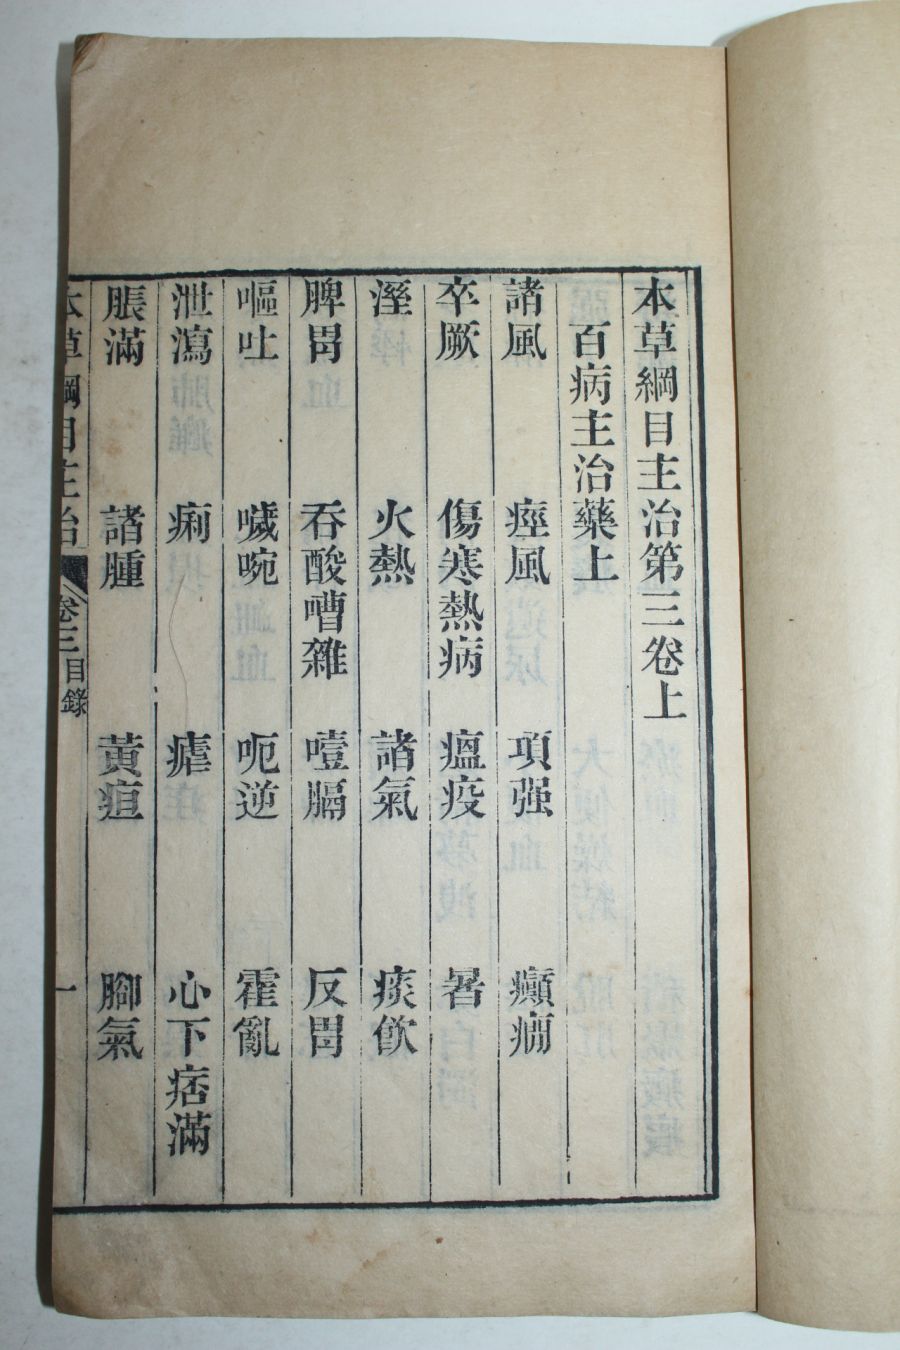 本草綱目主治第三卷上
百病主治藥上
諸風 痙風 項强 癲癇
卒厥 傷寒熱病 瘟疫 暑
溼 火熱 諸氣 痰飲
脾胃 吞酸嘈雜 噎膈 反胃
嘔吐 噦啘 呃逆 霍亂
泄瀉 痢 瘧 心下痞滿
脹滿 諸腫 黃疸 腳氣
本草綱目主治 卷三目錄 一